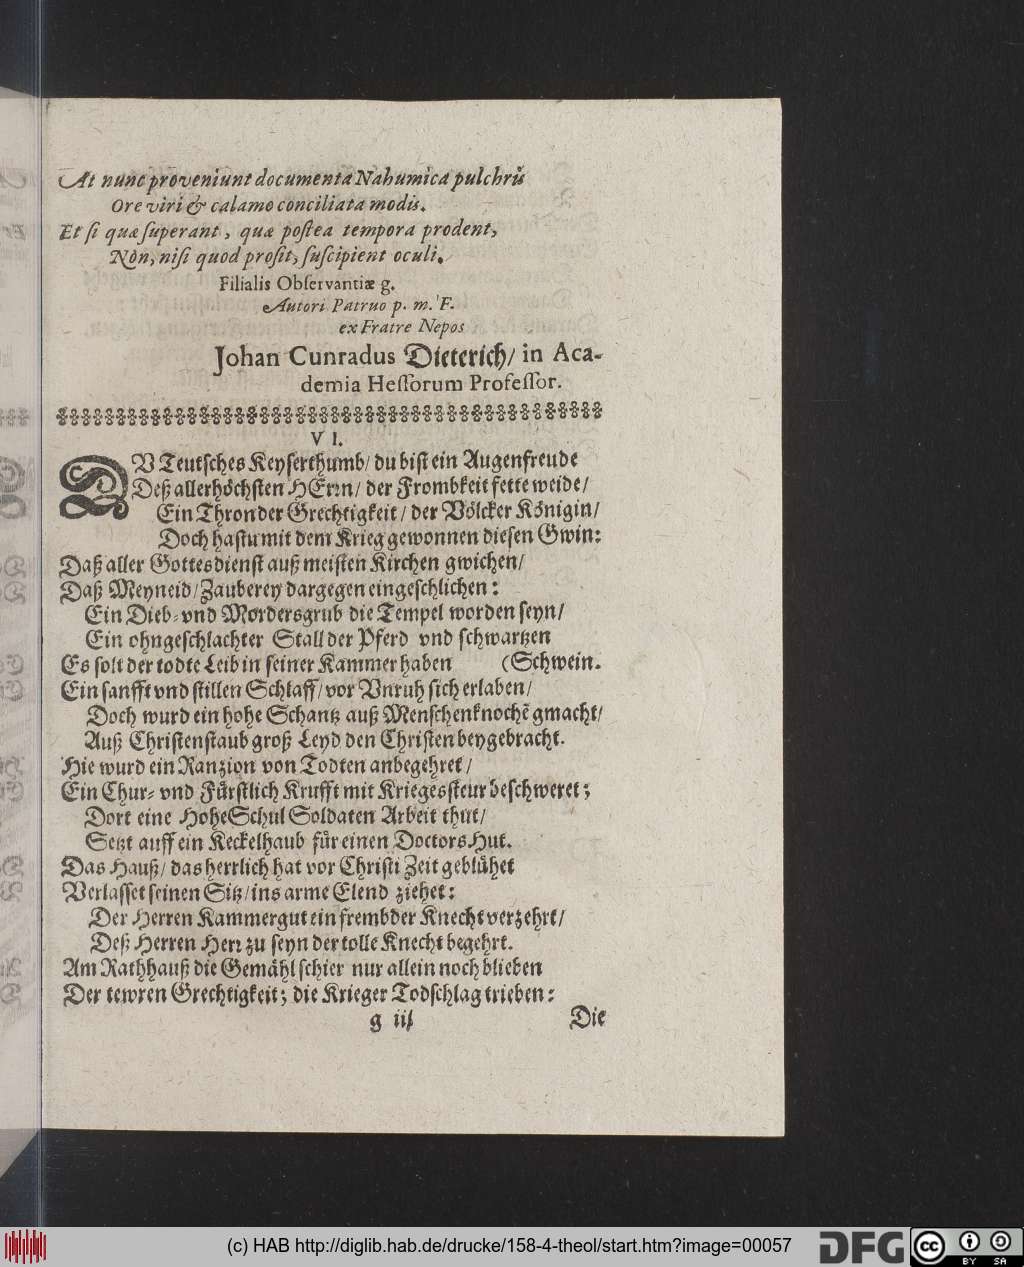 At nunc proveniunt documenta Nahumica pulchrè
Ore viri & calamo conciliata modis.
Et ſi quæ ſuperant, quæ poſtea tempora prodent,
Nòn, niſi quod proſit, ſuſcipient oculi.
Filialis Obſervantiæ g.
Autori Patruo p. m. F.
ex Fratre Nepos
Johan Cunradus Dieterich/ in Aca-
demia Heſſorum Profeſſor.
VI.
DV Teutſches Keyſerthumb/ du biſt ein Augenfreude
Deß allerhöchſten HErrn/ der Frombkeit fette weide/
Ein Thron der Grechtigkeit/ der Völcker Königin/
Doch haſtu mit dem Krieg gewonnen dieſen Gwin:
Daß aller Gottesdienſt auß meiſten Kirchen gwichen/
Daß Meyneid/ Zauberey dargegen eingeſchlichen:
Ein Dieb- vnd Mördersgrub die Tempel worden ſeyn/
Ein ohngeſchlachter Stall der Pferd vnd ſchwartzen
Es ſolt der todte Leib in ſeiner Kammer haben (Schwein.
Ein ſanfft vnd ſtillen Schlaff/ vor Vnruh ſich erlaben/
Doch wurd ein hohe Schantz auß Menſchenknochẽ gmacht/
Auß Chriſtenſtaub groß Leyd den Chriſten beygebracht.
Hie wurd ein Ranzion von Todten anbegehret/
Ein Chur- vnd Fürſtlich Krufft mit Kriegesſteur beſchweret;
Dort eine HoheSchul Soldaten Arbeit thut/
Setzt auff ein Keckelhaub für einen DoctorsHut.
Das Hauß/ das herrlich hat vor Chriſti Zeit geblühet
Verlaſſet ſeinen Sitz/ ins arme Elend ziehet:
Der Herren Kammergut ein frembder Knecht verzehrt/
Deß Herren Herr zu ſeyn der tolle Knecht begehrt.
Am Rathhauß die Gemähl ſchier nur allein noch blieben
Der tewren Grechtigkeit; die Krieger Todſchlag trieben:
g iij Die
(c) HAB http://diglib.hab.de/drucke/158-4-theol/start.htm?image=00057
DFG
cc BY SA